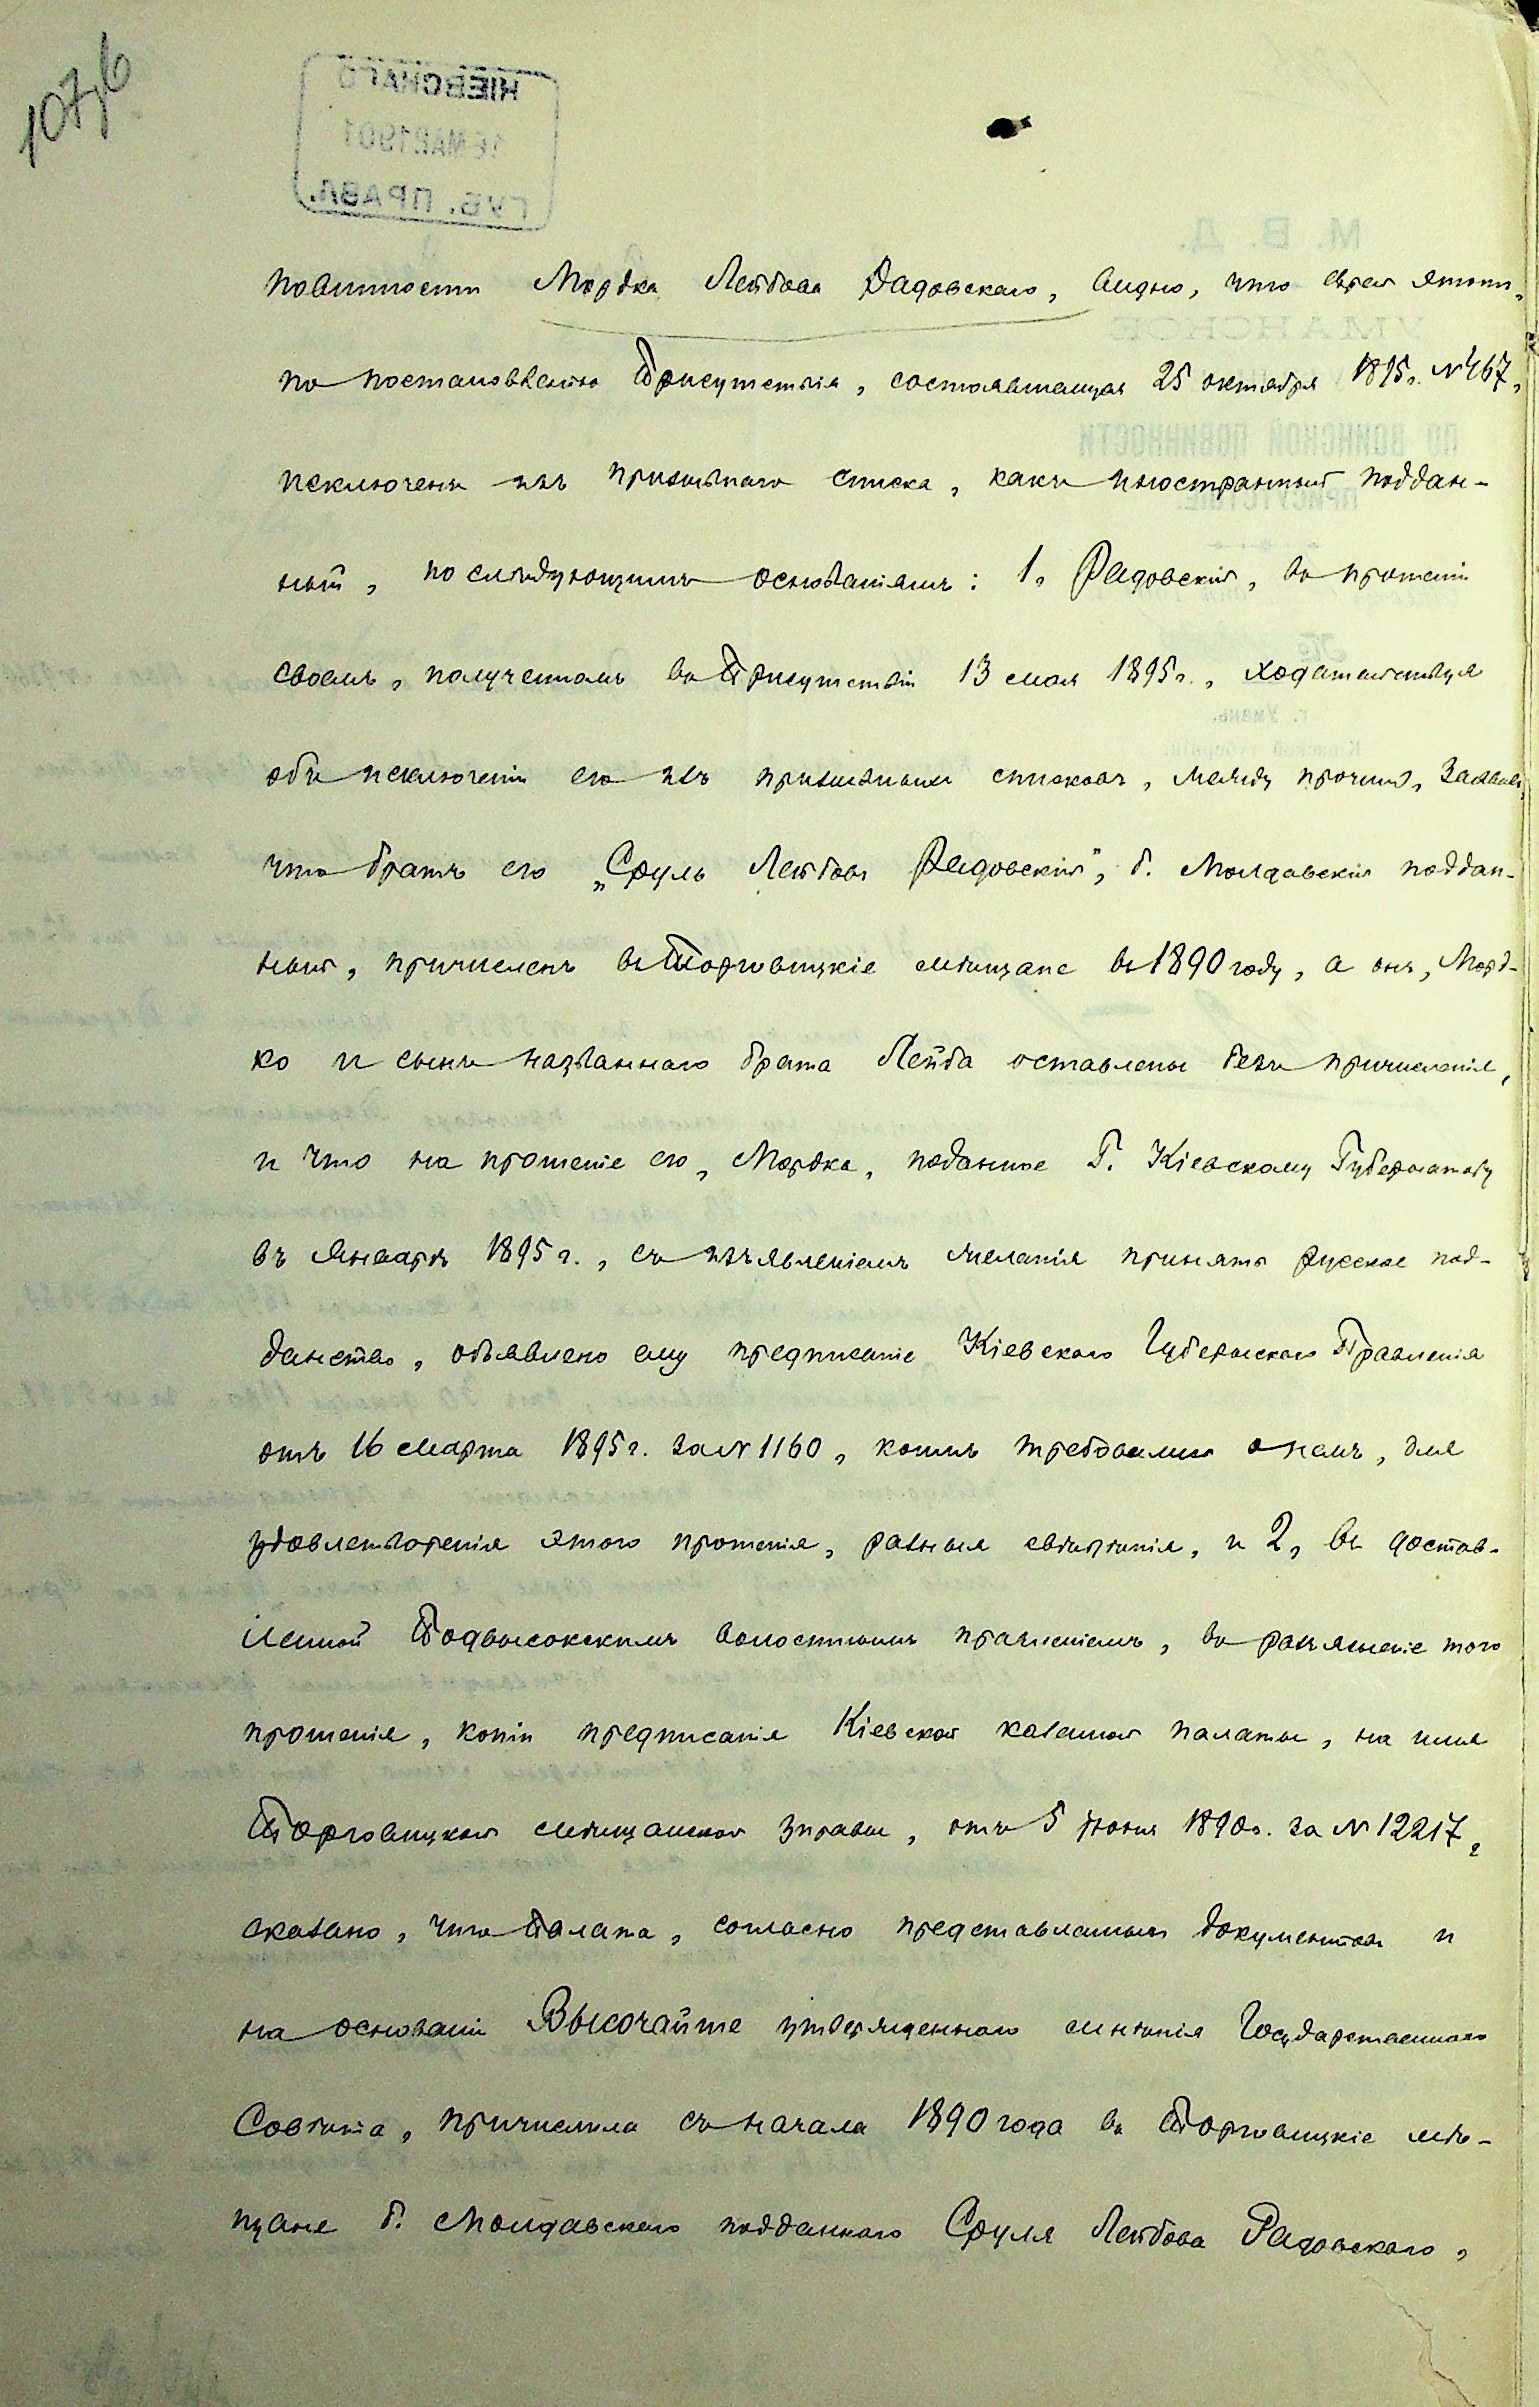 107,6
КІЕВСКАГО
16 МАР 1901
ГУБ. ПРАВЛ.
М. В. Д.
УМАНСКОЕ
ПО ВОИНСКОЙ ПОВИННОСТИ
ПРИСУТСТВІЕ.
г. Умань.
Кіевской губерніи.
повинности Мордка Лейбова Радовскаго, видно, что еврей этотъ,
по постановленію Присутствія, состоявшемуся 25 октября 1895 г. № 467,
исключенъ изъ призывнаго списка, какъ иностранный поддан-
ный, по слѣдующимъ основаніямъ: 1, Радовскій, въ прошеніи
своемъ, полученномъ въ Присутствіи 13 мая 1895 г., ходатайствуя
объ исключеніи его изъ призывныхъ списковъ, между прочимъ, заявилъ,
что братъ его „Сруль Лейбовъ Радовскій", б. Молдавскій поддан-
ный, причисленъ въ Торговицкіе мѣщане въ 1890 году, а онъ, Морд-
ко и сынъ названнаго брата Лейба оставлены безъ причисленія,
и что на прошеніе его, Мордка, поданное Г. Кіевскому Губернатору
въ Январѣ 1895 г., съ изъявленіемъ желанія принять русское под-
данство, объявлено ему предписаніе Кіевскаго Губернскаго Правленія
отъ 16 Марта 1895 г. за № 1160, коимъ требовались о немъ, для
удовлетворенія этого прошенія, разныя свѣдѣнія, и 2, въ достав-
ленной Подвысокскимъ волостнымъ правленіемъ, въ разъясненіе того
прошенія, копіи предписанія Кіевской казенной палаты, на имя
Торговицкой мѣщанской управы, отъ 5 Іюня 1890 г. за № 12217,
сказано, что Палата, согласно представленнымъ документамъ и
на основаніи Высочайше утвержденнаго мнѣнія Государственнаго
Совѣта, причислила съ начала 1890 года въ Торговицкіе мѣ-
щане б. Молдавскаго подданнаго Сруля Лейбова Радовскаго,